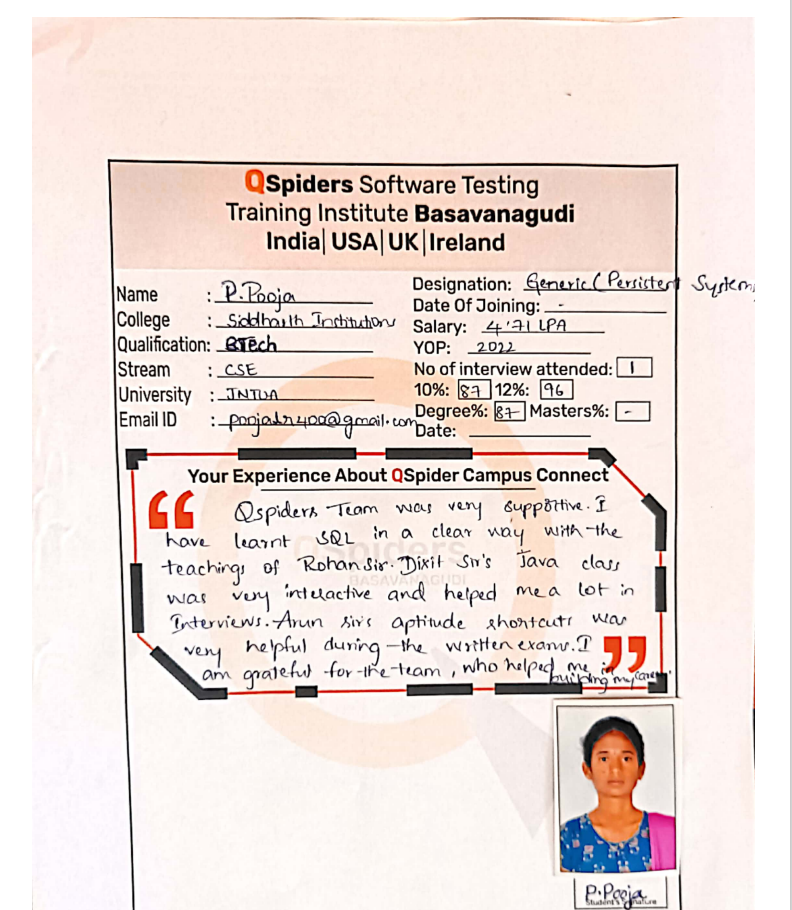 QSpiders Software Testing
Training Institute Basavanagudi
India| USA| UK |Ireland
Name : P.Pooja
College : Siddharth Institutions
Qualification: BTech
Stream : CSE
University : JNTUA
Email ID : @gmail.com
Designation: Generic (Persistent System
Date Of Joining: -
Salary: 4.71 LPA
YOP: 2022
No of interview attended: 1
10%: 87 12%: 96
Degree%: 87 Masters%: -
Date:
Your Experience About QSpider Campus Connect
“ Qspiders Team was very supportive. I
have learnt SQL in a clear way with the
teachings of Rohan Sir. Dixit Sir's Java class
was very interactive and helped me a lot in
Interviews. Arun sir's aptitude shortcuts was
very helpful during the written exams. I
am grateful for the team, who helped me in
building my career ”
QSpiders
BASAVANAGUDI
P.Pooja
Student's Signature